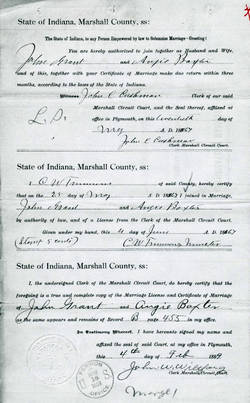 State of Indiana, Marshall County, ss:
The State of Indiana, to any Person Empowered by law to Solemnize Marriage—Greeting:
You are hereby authorized to join together as Husband and Wife,
John Grant and Angie Baxter
and of this, together with your Certificate of Marriage make due return within three
months, according to the laws of the State of Indiana.
Witness John C Cushman Clerk of our said
Marshall Circuit Court, and the Seal thereof, affixed
L. S. at office in Plymouth, this
day of
May A. D. 1867
John C Cushman
Clerk Marshall Circuit Court.
State of Indiana, Marshall County, ss:
I C W Timmons of said hereby certify
that on the 25 day of May A. D. 1867 I joined in Marriage
John Grant and Angie Baxter
by authority of law, and of a License from the Clerk of the Marshall Circuit Court.
Given under my hand, this 4 day of June A. D. 1867
(Stamp 5 cents) C W Timmons Minister
State of Indiana, Marshall County, ss:
I, the undersigned Clerk of the Marshall Circuit Court, do hereby certify that the
foregoing is a true and complete copy of the Marriage License and Certificate of Marriage
of John Grant and Angie Baxter
as the same appears and remains of Record B page 455 in my office.
In Testimony Whereof, I have hereunto signed my name and
affixed the seal of said Court, at my office in Plymouth,
this 4th day of Feb
John W
Clerk Marshall Circuit Court.